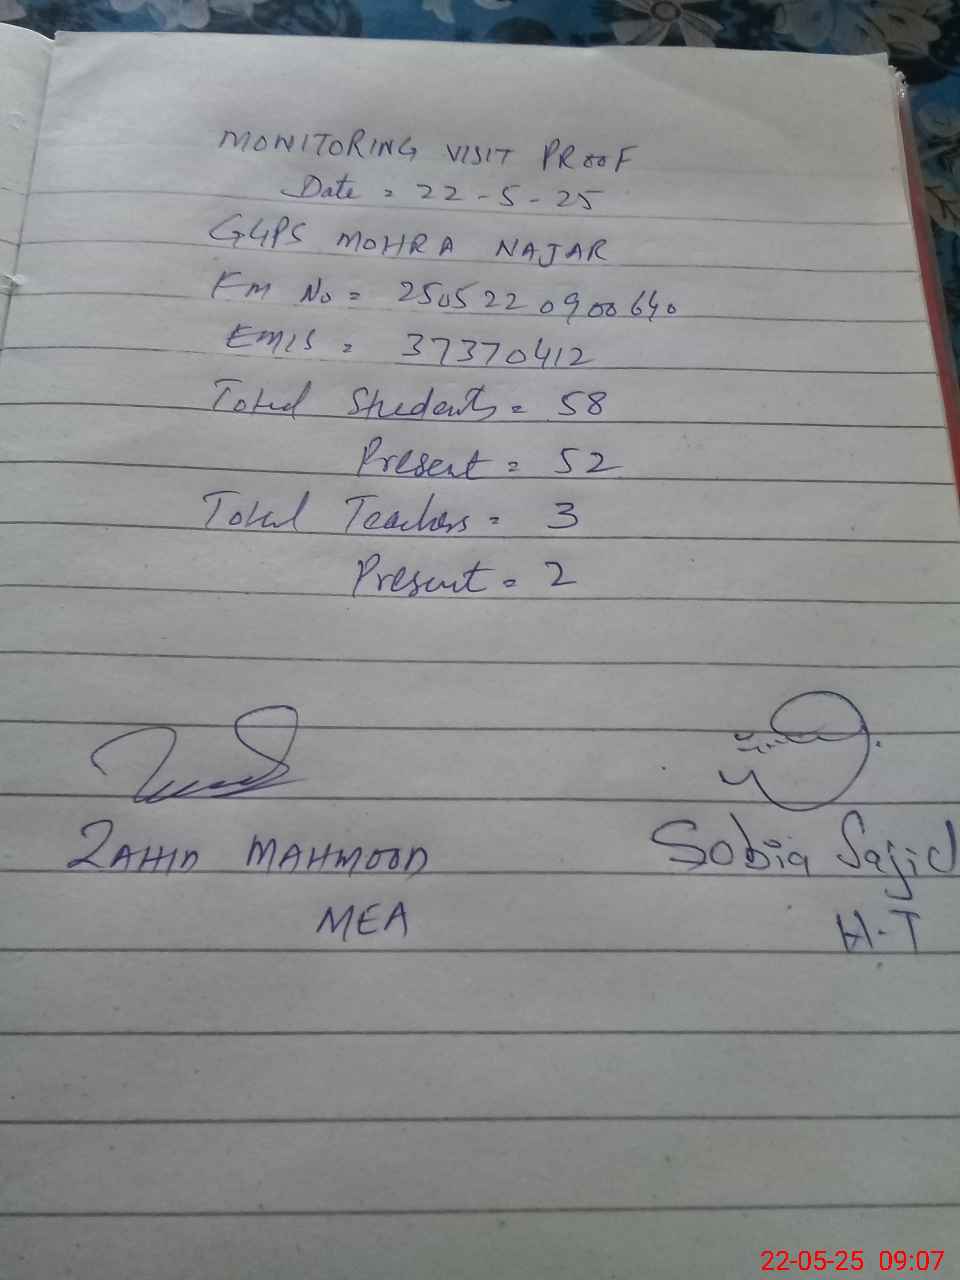 MONITORING VISIT PROOF
Date = 22-5-25
GGPS MOHRA NAJAR
FM No = 2505220900640
EMIS = 37370412
Total Students = 58
Present = 52
Total Teachers = 3
Present = 2
ZAHID MAHMOOD
Sobia Sajid
MEA
H.T
22-05-25 09:07